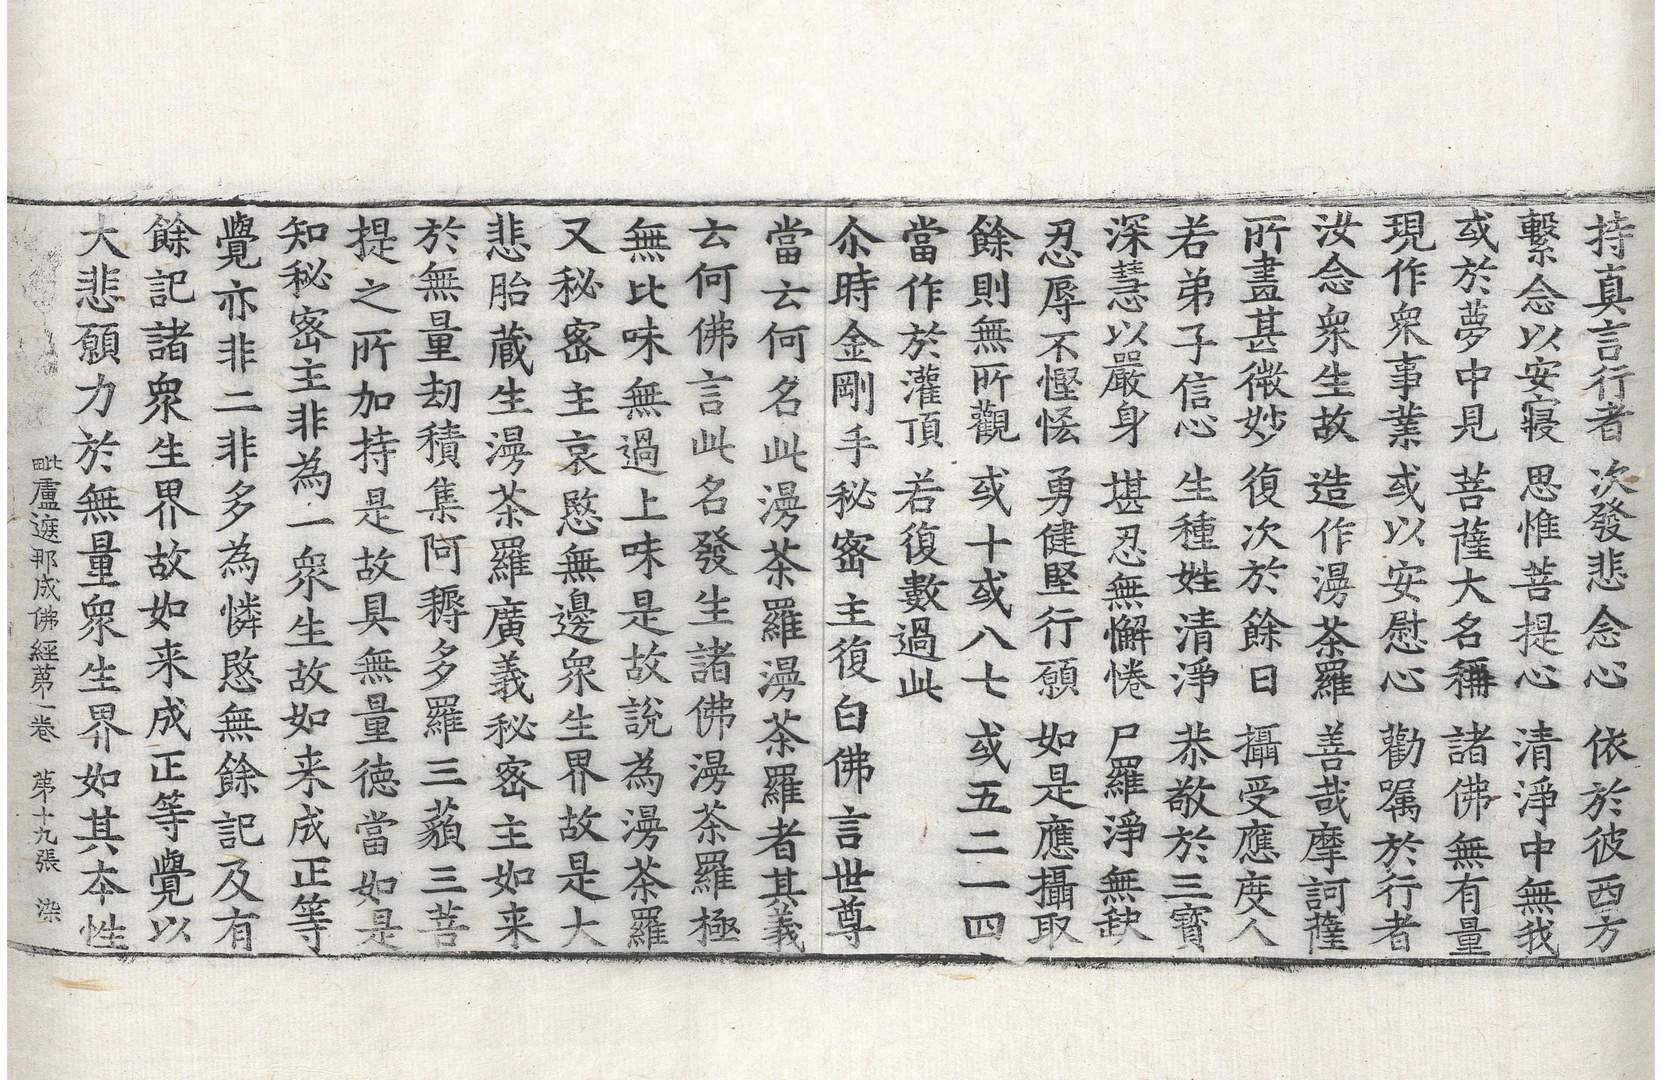 持真言行者 次發悲念心 依於彼西方
繫念以安寢 思惟菩提心 清淨中無我
或於夢中見 菩薩大名稱 諸佛無有量
現作衆事業 或以安慰心 勸囑於行者
汝念衆生故 造作漫茶羅 善哉摩訶薩
所畫甚微妙 復次於餘日 攝受應度人
若弟子信心 生種姓清淨 恭敬於三寶
深慧以嚴身 堪忍無懈惓 尸羅淨無缺
忍辱不慳悋 勇健堅行願 如是應攝取
餘則無所觀 或十或八七 或五二一四
當作於灌頂 若復數過此
尒時金剛手秘密主復白佛言世尊
當云何名此漫茶羅漫茶羅者其義
云何佛言此名發生諸佛漫茶羅極
無比味無過上味是故說為漫茶羅
又秘密主哀愍無邊衆生界故是大
悲胎藏生漫茶羅廣義秘密主如来
於無量劫積集阿耨多羅三藐三菩
提之所加持是故具無量德當如是
知秘密主非為一衆生故如来成正等
覺亦非二非多為憐愍無餘記及有
餘記諸衆生界故如来成正等覺以
大悲願力於無量衆生界如其本性
毗盧遮那成佛經第一卷 第十九張 染